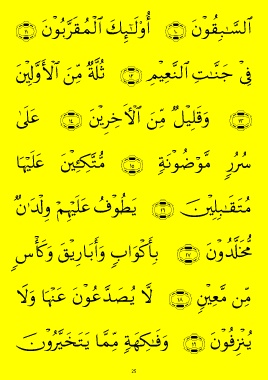 ٱلسَّـٰبِقُونَ ١٠ أُو۟لَـٰٓئِكَ ٱلْمُقَرَّبُونَ ١١
فِى جَنَّـٰتِ ٱلنَّعِيمِ ١٢ ثُلَّةٌ مِّنَ ٱلْأَوَّلِينَ
١٣ وَقَلِيلٌ مِّنَ ٱلْـَٔاخِرِينَ ١٤ عَلَىٰ
سُرُرٍ مَّوْضُونَةٍ ١٥ مُّتَّكِـِٔينَ عَلَيْهَا
مُتَقَـٰبِلِينَ ١٦ يَطُوفُ عَلَيْهِمْ وِلْدَٰنٌ
مُّخَلَّدُونَ ١٧ بِأَكْوَابٍ وَأَبَارِيقَ وَكَأْسٍ
مِّن مَّعِينٍ ١٨ لَّا يُصَدَّعُونَ عَنْهَا وَلَا
يُنزِفُونَ ١٩ وَفَـٰكِهَةٍ مِّمَّا يَتَخَيَّرُونَ
25